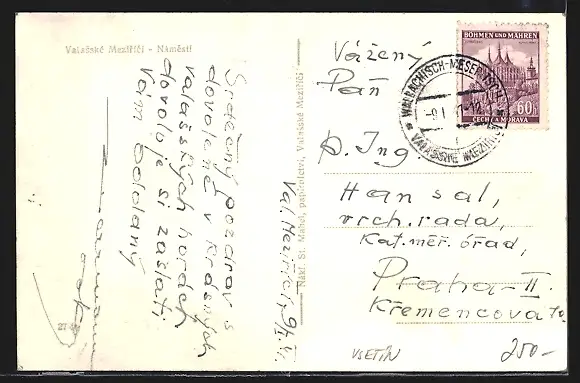 Valašské Meziříčí - Náměstí
Srdečný pozdrav s
dovolené v krásných
valašských horách
dovoluje si zaslati
Vám oddaný
Val. Meziříčí,
Nákl. St. Mahel, papírnictví, Valašské Meziříčí
Vážený
Pan
p. Ing.
Hansal,
vrch. rada,
Kat. měř. úřad,
Praha-II.
Křemencova
BÖHMEN UND MÄHREN
60h
ČECHY A MORAVA
WALACHISCH-MESERITSCH
VALAŠSKÉ MEZIŘÍČÍ
VSETÍN
250-